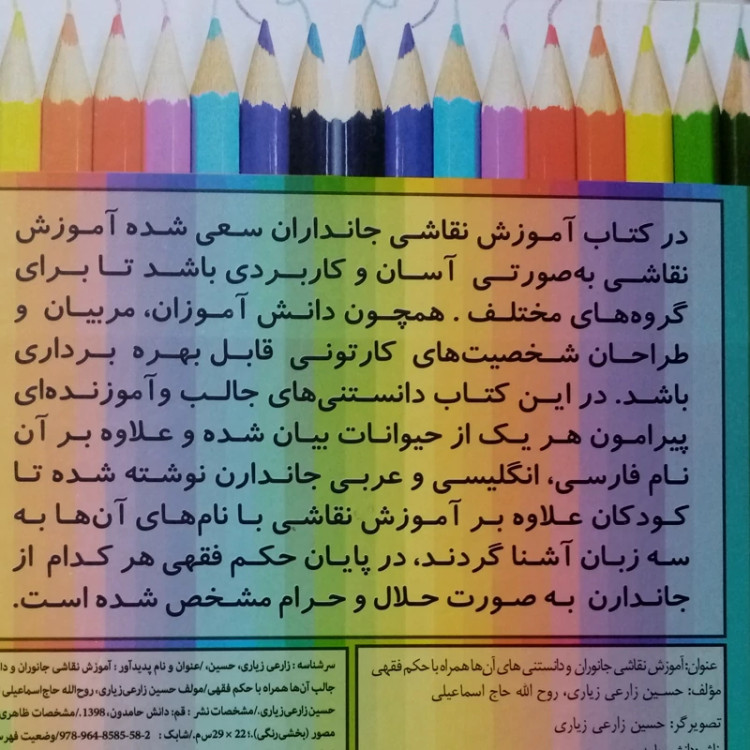 در کتاب آموزش نقاشی جانداران سعی شده آموزش
نقاشی به‌صورتی آسان و کاربردی باشد تا برای
گروه‌های مختلف . همچون دانش آموزان، مربیان و
طراحان شخصیت‌های کارتونی قابل بهره برداری
باشد. در این کتاب دانستنی‌های جالب وآموزنده‌ای
پیرامون هر یک از حیوانات بیان شده و علاوه بر آن
نام فارسی، انگلیسی و عربی جاندارن نوشته شده تا
کودکان علاوه بر آموزش نقاشی با نام‌های آن‌ها به
سه زبان آشنا گردند، در پایان حکم فقهی هر کدام از
جاندارن به صورت حلال و حرام مشخص شده است.
عنوان:آموزش نقاشی جانوران و دانستنی های آن‌ها همراه با حکم فقهی
مؤلف: حسین زارعی زیاری، روح الله حاج اسماعیلی
تصویرگر: حسین زارعی زیاری
سرشناسه : زارعی زیاری، حسین، /عنوان و نام پدیدآور : آموزش نقاشی جانوران و
جالب آن‌ها همراه با حکم فقهی/مولف حسین زارعی‌زیاری، روح‌الله حاج‌اسماعیلی
حسین‌زارعی‌زیاری./مشخصات نشر : قم: دانش حامدون، 1398./مشخصات ظاهری
مصور (بخشی‌رنگی).؛ 22 × 29س‌م./شابک : 978-964-8585-58-2/وضعیت